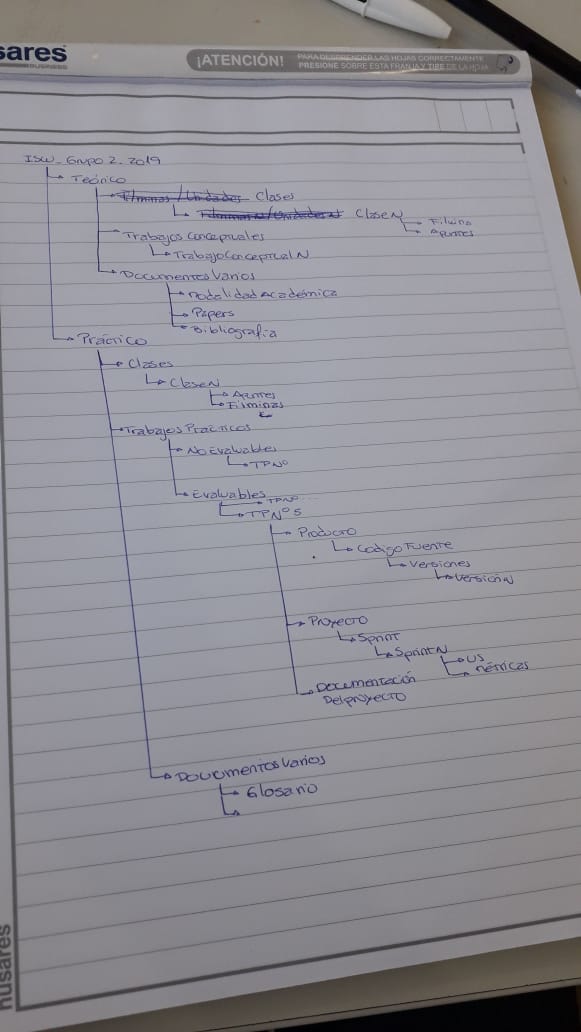 sares
BUSINESS
¡ATENCIÓN!
PARA DESPRENDER LAS HOJAS CORRECTAMENTE
PRESIONE SOBRE ESTA FRANJA Y TIRE DE LA HOJA
ISW_Grupo 2_2019
Teórico
Filminas/Unidades Clases
ClaseN
Filmina
Apuntes
Trabajos Conceptuales
TrabajoConceptual N
Documentos Varios
Modalidad Académica
Papers
Bibliografía
Práctico
Clases
ClaseN
Apuntes
Filminas
Trabajos Prácticos
No Evaluables
TPNº
Evaluables
TPNº
TPNº5
Producto
Codigo Fuente
Versiones
VersiónN
Proyecto
Sprint
SprintN
US
Métricas
Documentación
Del proyecto
Documentos Varios
Glosario
husares